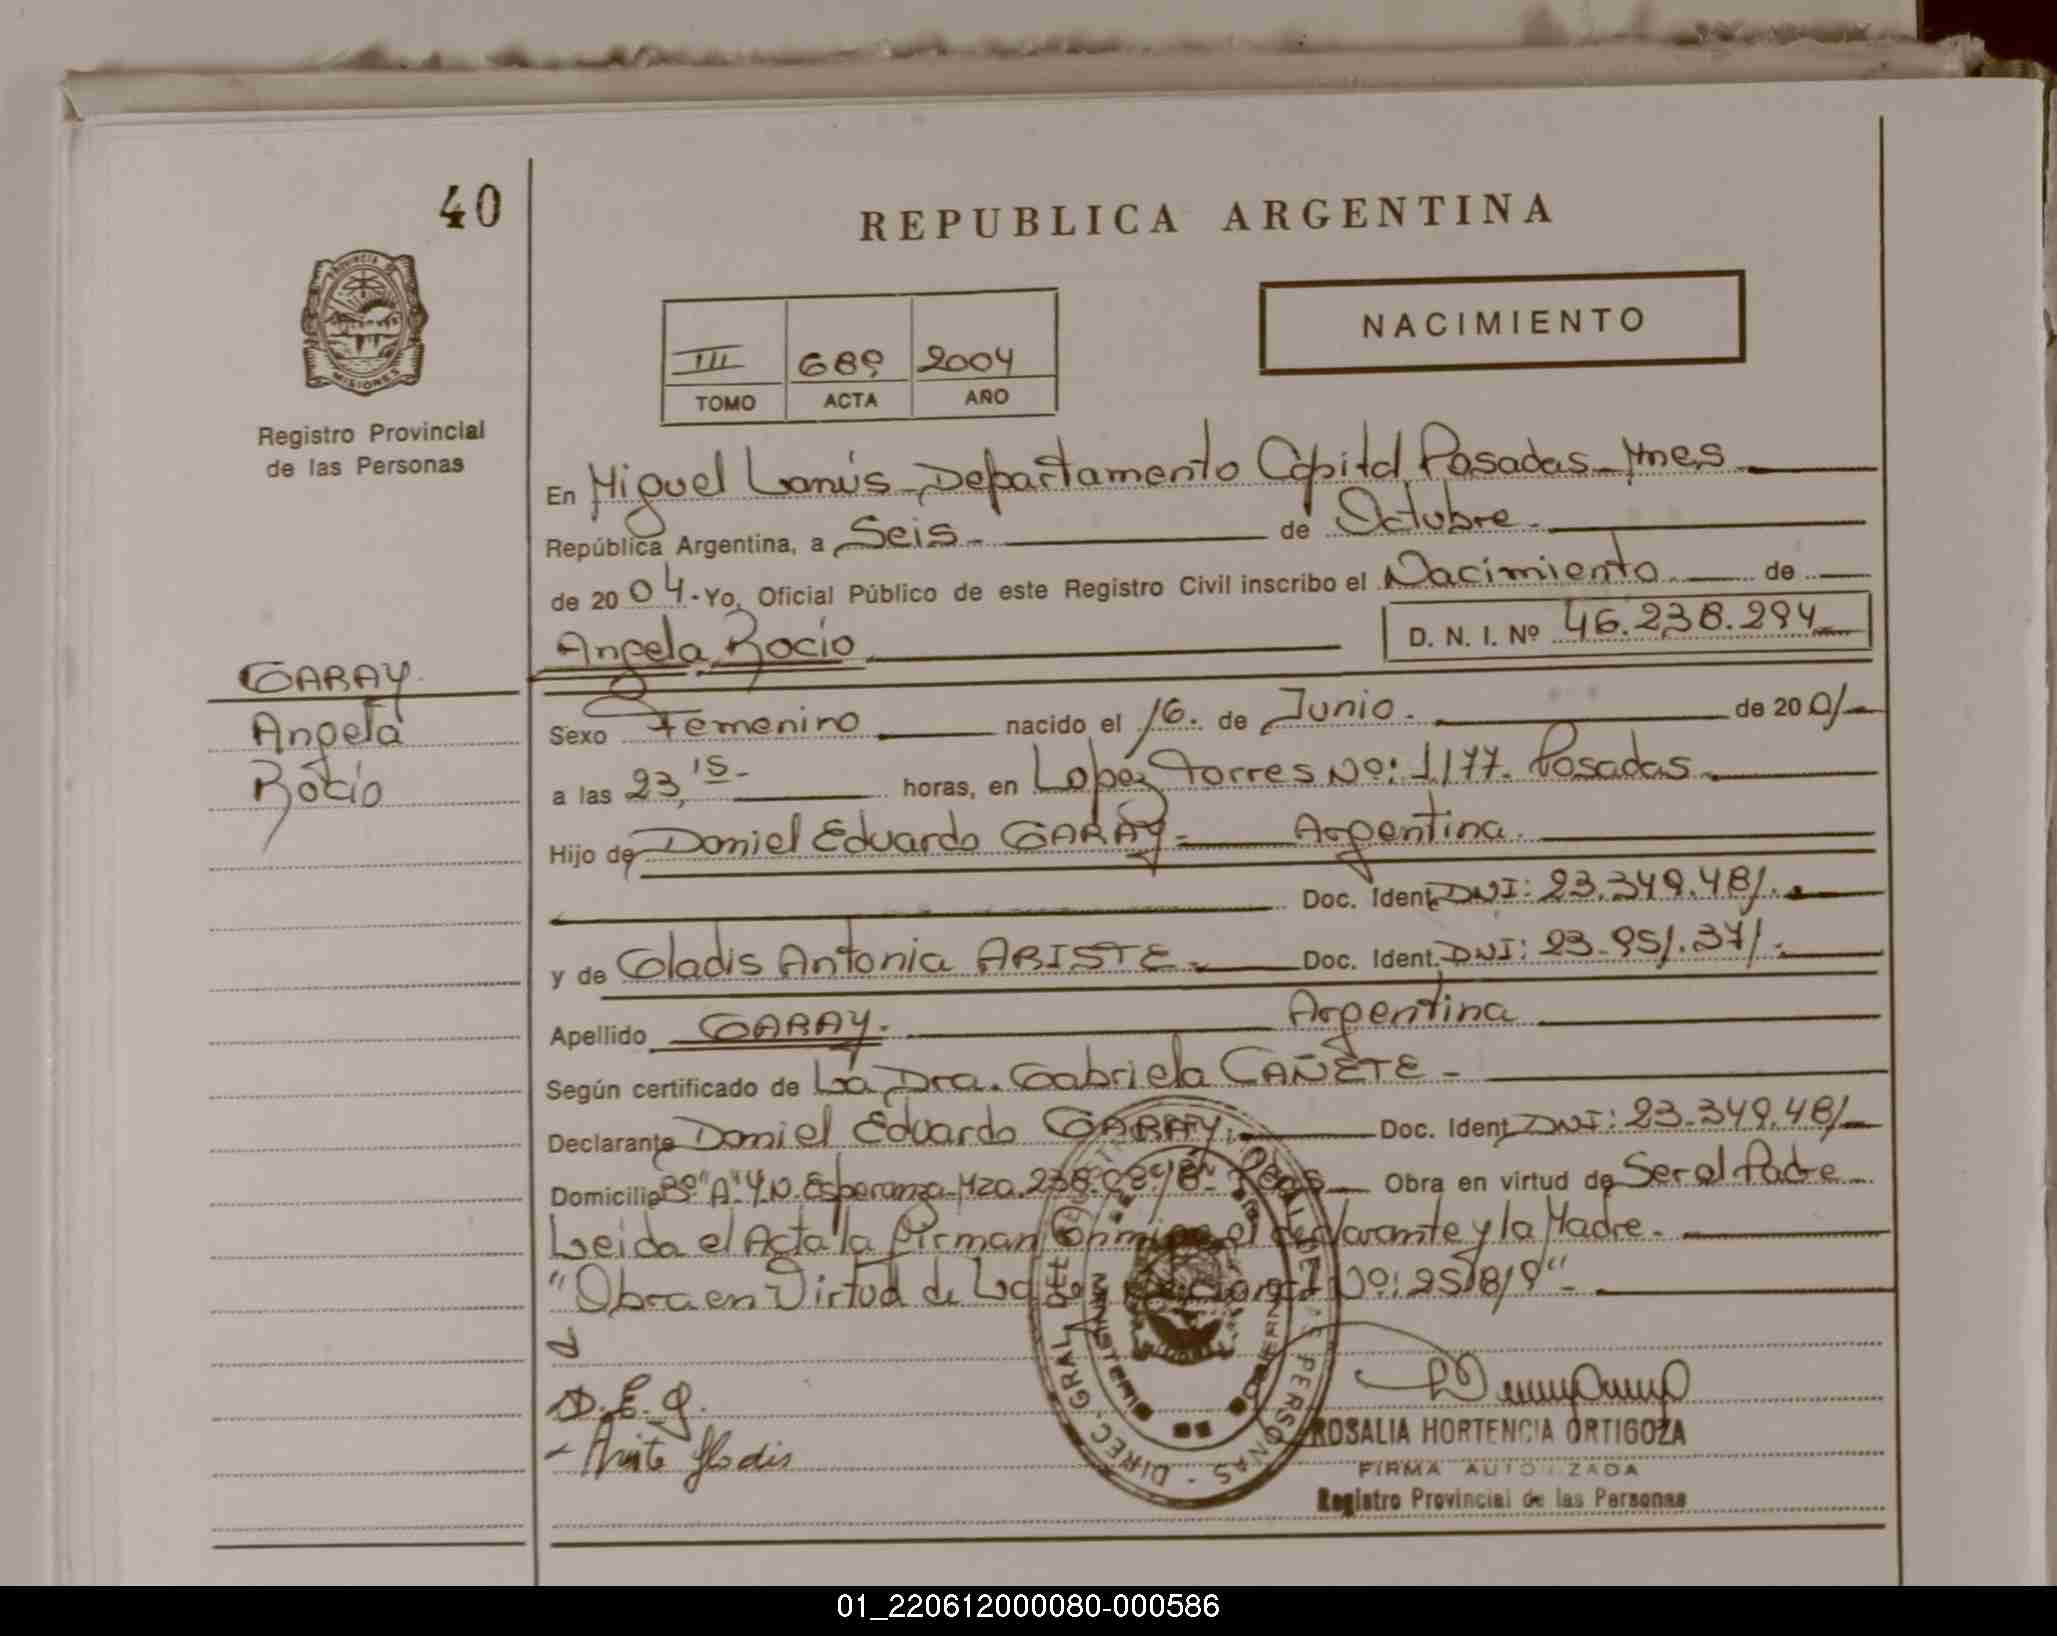 40
REPUBLICA ARGENTINA
PROVINCIA DE
MISIONES
NACIMIENTO
III 689 2004
TOMO ACTA AÑO
Registro Provincial
de las Personas
En Miguel Lanús - Departamento Capital Posadas - Mnes
República Argentina, a Seis - de Octubre -
de 2004 - Yo, Oficial Público de este Registro Civil inscribo el Nacimiento de
Angela Rocío D. N. I. Nº 46.238.294
GARAY
Angela
Rocío
Sexo Femenino nacido el 16. de Junio. de 2001
a las 23,15- horas, en Lopez Torres Nº: 1177. Posadas
Hijo de Daniel Eduardo GARAY - Argentina.
Doc. Ident. DNI: 23.349.481.
y de Gladis Antonia ARISTE Doc. Ident. DNI: 23.951.371.
Apellido GARAY. Argentina
Según certificado de La Dra. Gabriela CAÑETE -
Declarante Daniel Eduardo GARAY. Doc. Ident. DNI: 23.349.481
Domicilio "A" 4 N. Esperanza - Mza. 238 Obra en virtud de Ser el Padre
Leida el Acta la firman Conmigo el declarante y la Madre.
"Obra en Virtud de La Nº: 25.819" -
D. E. G.
- Ariste Gladis
DIREC. GRAL. DEL DE LAS PERSONAS
MINISTERIO DE GOBIERNO
ROSALIA HORTENCIA ORTIGOZA
FIRMA AUTORIZADA
Registro Provincial de las Personas
01_220612000080-000586